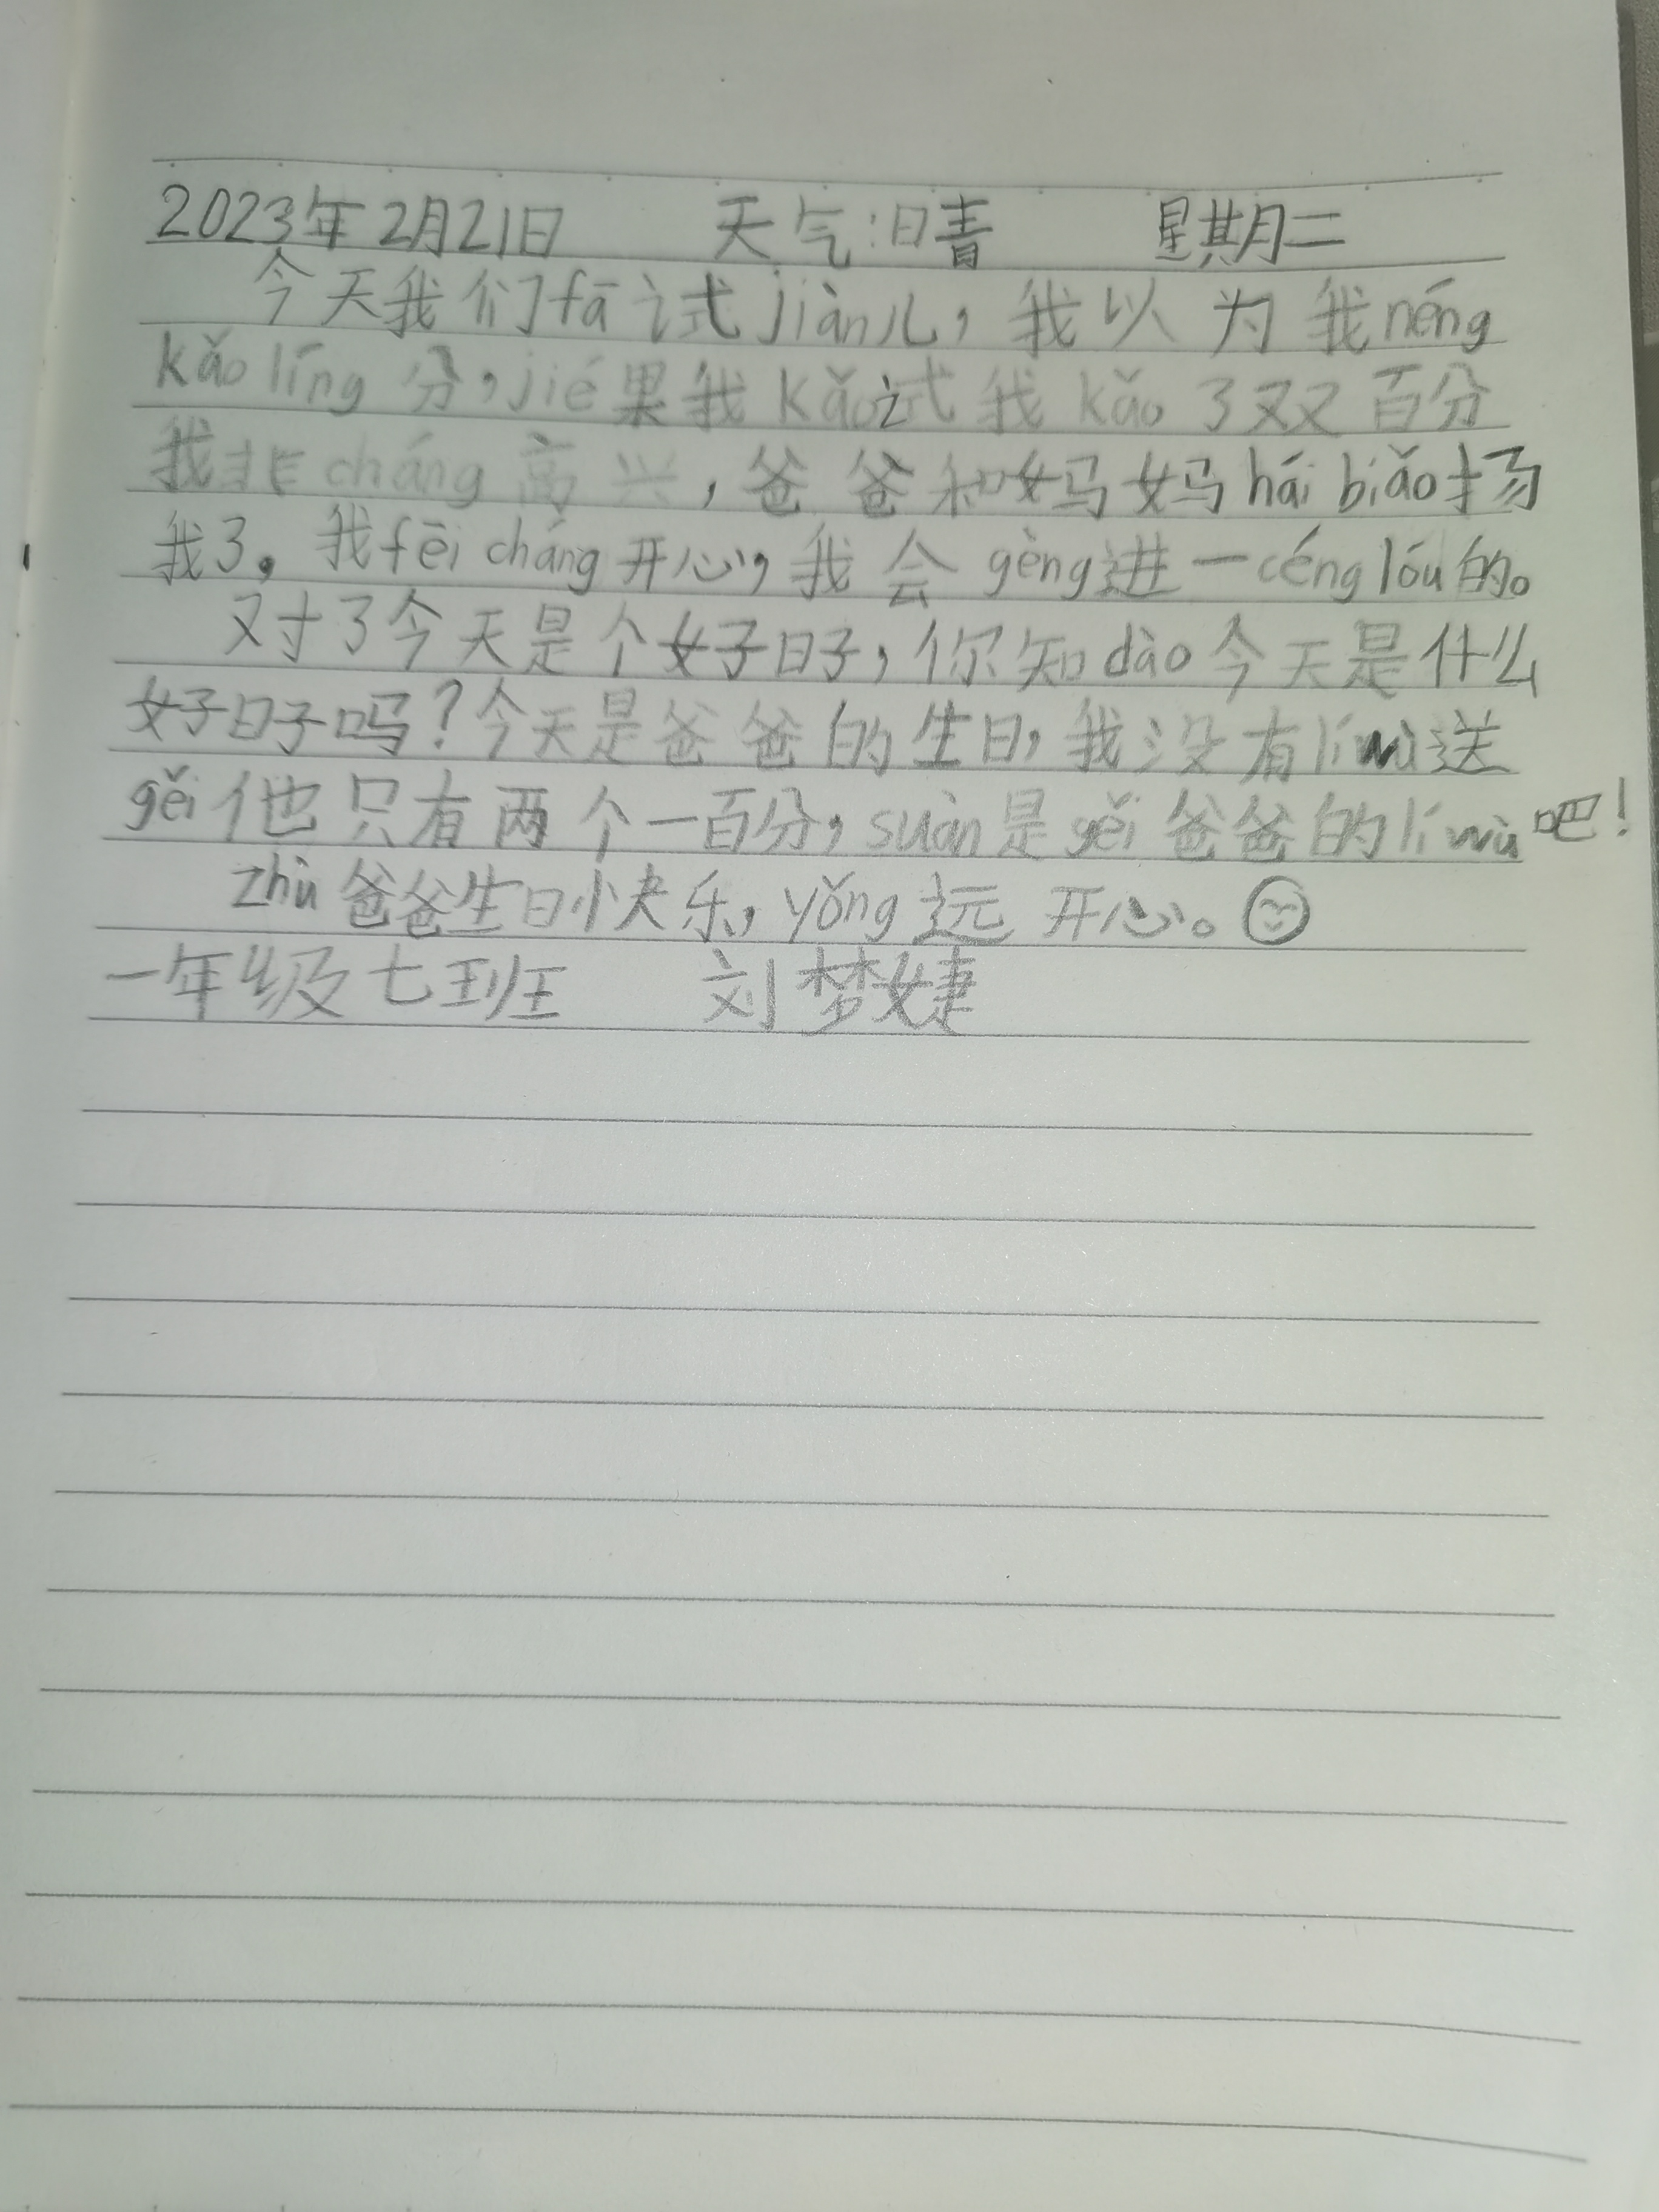 2023年2月21日 天气:晴 星期二
今天我们fā试jiàn儿，我以为我néng
kǎo líng分，jié果我kǎo试我kǎo了双百分
我非cháng高兴，爸爸和妈妈hái biǎo扬
我了。我fēi cháng开心，我会gèng进一céng lóu的。
对了今天是个好日子，你知dào今天是什么
好日子吗？今天是爸爸的生日，我没有lí wù送
gěi他只有两个一百分，suàn是gěi爸爸的lí wù吧！
zhù爸爸生日快乐，yǒng远开心。
一年级七班 刘梦婕